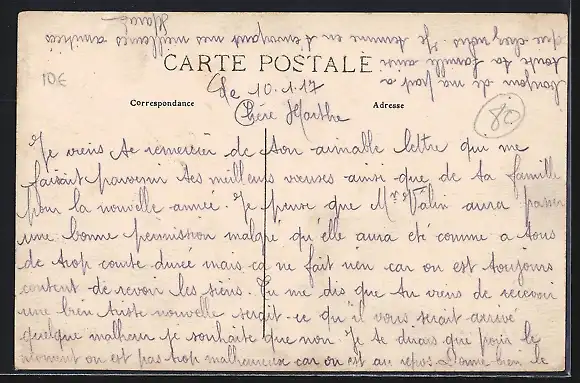 CARTE POSTALE
Correspondance
Adresse
10€
80
Le 10.1.17
Chère Marthe
Je viens te remercier de ton aimable lettre qui me
faisait parvenir tes meilleurs voeuses ainsi que de ta famille
pour la nouvelle année. Je pense que Mr Valin aura passer
une bonne permission malgré qu'elle aura eté comme a tous
de trop courte durée mais ca ne fait rien car on est toujours
content de revoir les siens. Tu me dis que tu viens de recevoir
une bien triste nouvelle serait-ce qu'il vous serait arrivé
quelque malheur je souhaite que non. Je te dirais que pour le
moment on est pas trop malheureux car on est au repos. Donne bien le
bonjour de ma part a
toute ta famille ainsi
que chez nous. Je termine en t'envoyant mes meilleures amitiées